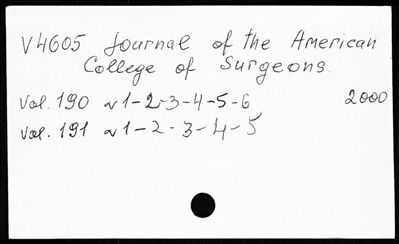 V4605 Journal of the American
College of Surgeons.
Vol. 190 N 1-2-3-4-5-6 2000
Vol. 191 N 1-2-3-4-5